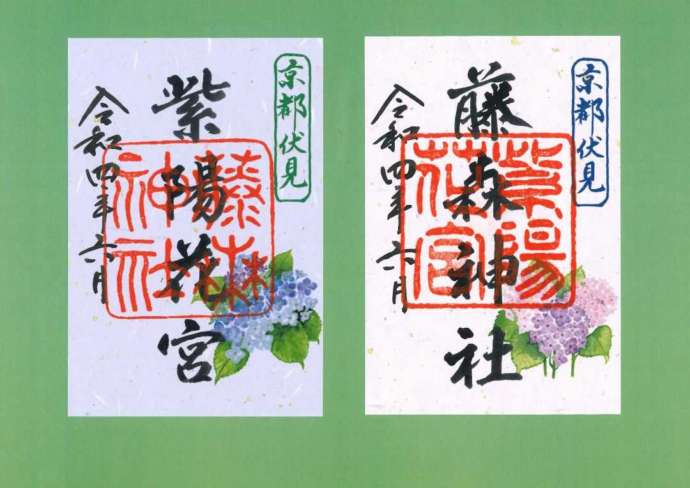 京都伏見
紫陽花宮
藤森神社
令和四年六月
京都伏見
藤森神社
紫陽花宮
令和四年六月